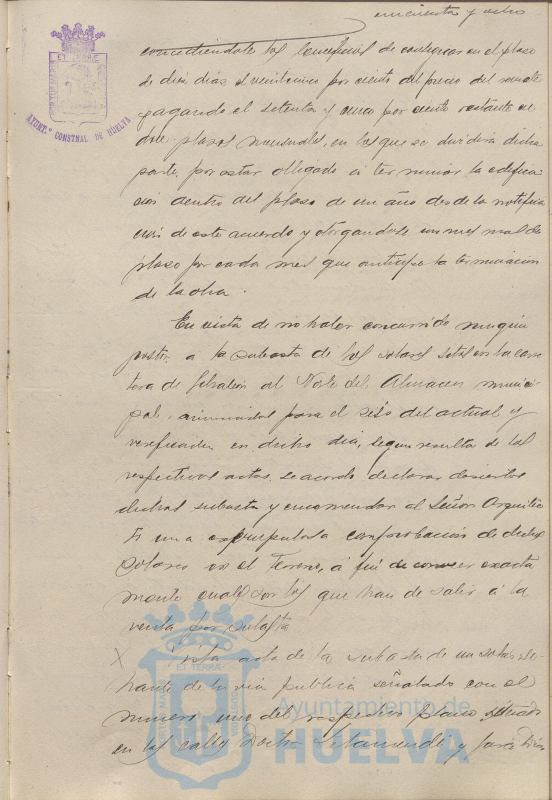 cincuenta y ocho
AYUNT.º CONSTNAL DE HUELVA
concediéndole los beneficios de consignar en el plazo
de diez días el veinticinco por ciento del precio del remate
pagando el setenta y cinco por ciento restante en
doce plazos mensuales, en los que se dividirá dicha
parte, por estar obligado a terminar la edifica-
ción dentro del plazo de un año desde la notifica
ción de este acuerdo y otorgándole un mes mas de
plazo por cada mes que anticipe la terminación
de la obra.
En vista de no haber concurrido ningun
postor a la subasta de los solares sitos en la carre
tera de Gibraleon al Norte del Almacen munici
pal, anunciadas para el seis del actual y
verificadas en dicho día, segun resulta de las
respectivas actas, se acordo declarar desiertas
dichas subastas y encomendar al Señor Arquitec
to una escrupulosa comprobación de dichos
solares en el terreno, á fin de conocer exacta
mente cuales son los que han de salir á la
venta por subasta
X Vista acta de la subasta de un solar so-
brante de la via publica señalado con el
numero uno del respectivo plano situado
en las calles Doctor Letamendi y
PORTUS MARIS
ET TERRAE
CUSTODIA
Ayuntamiento de
HUELVA